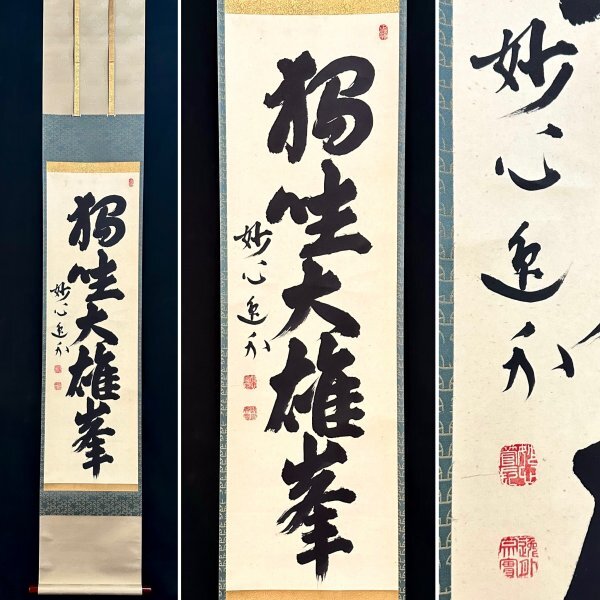 獨坐大雄峯
妙心逸外
獨坐大雄峯
妙心逸外
妙心逸外